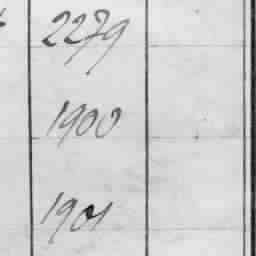 2279
1900
1901